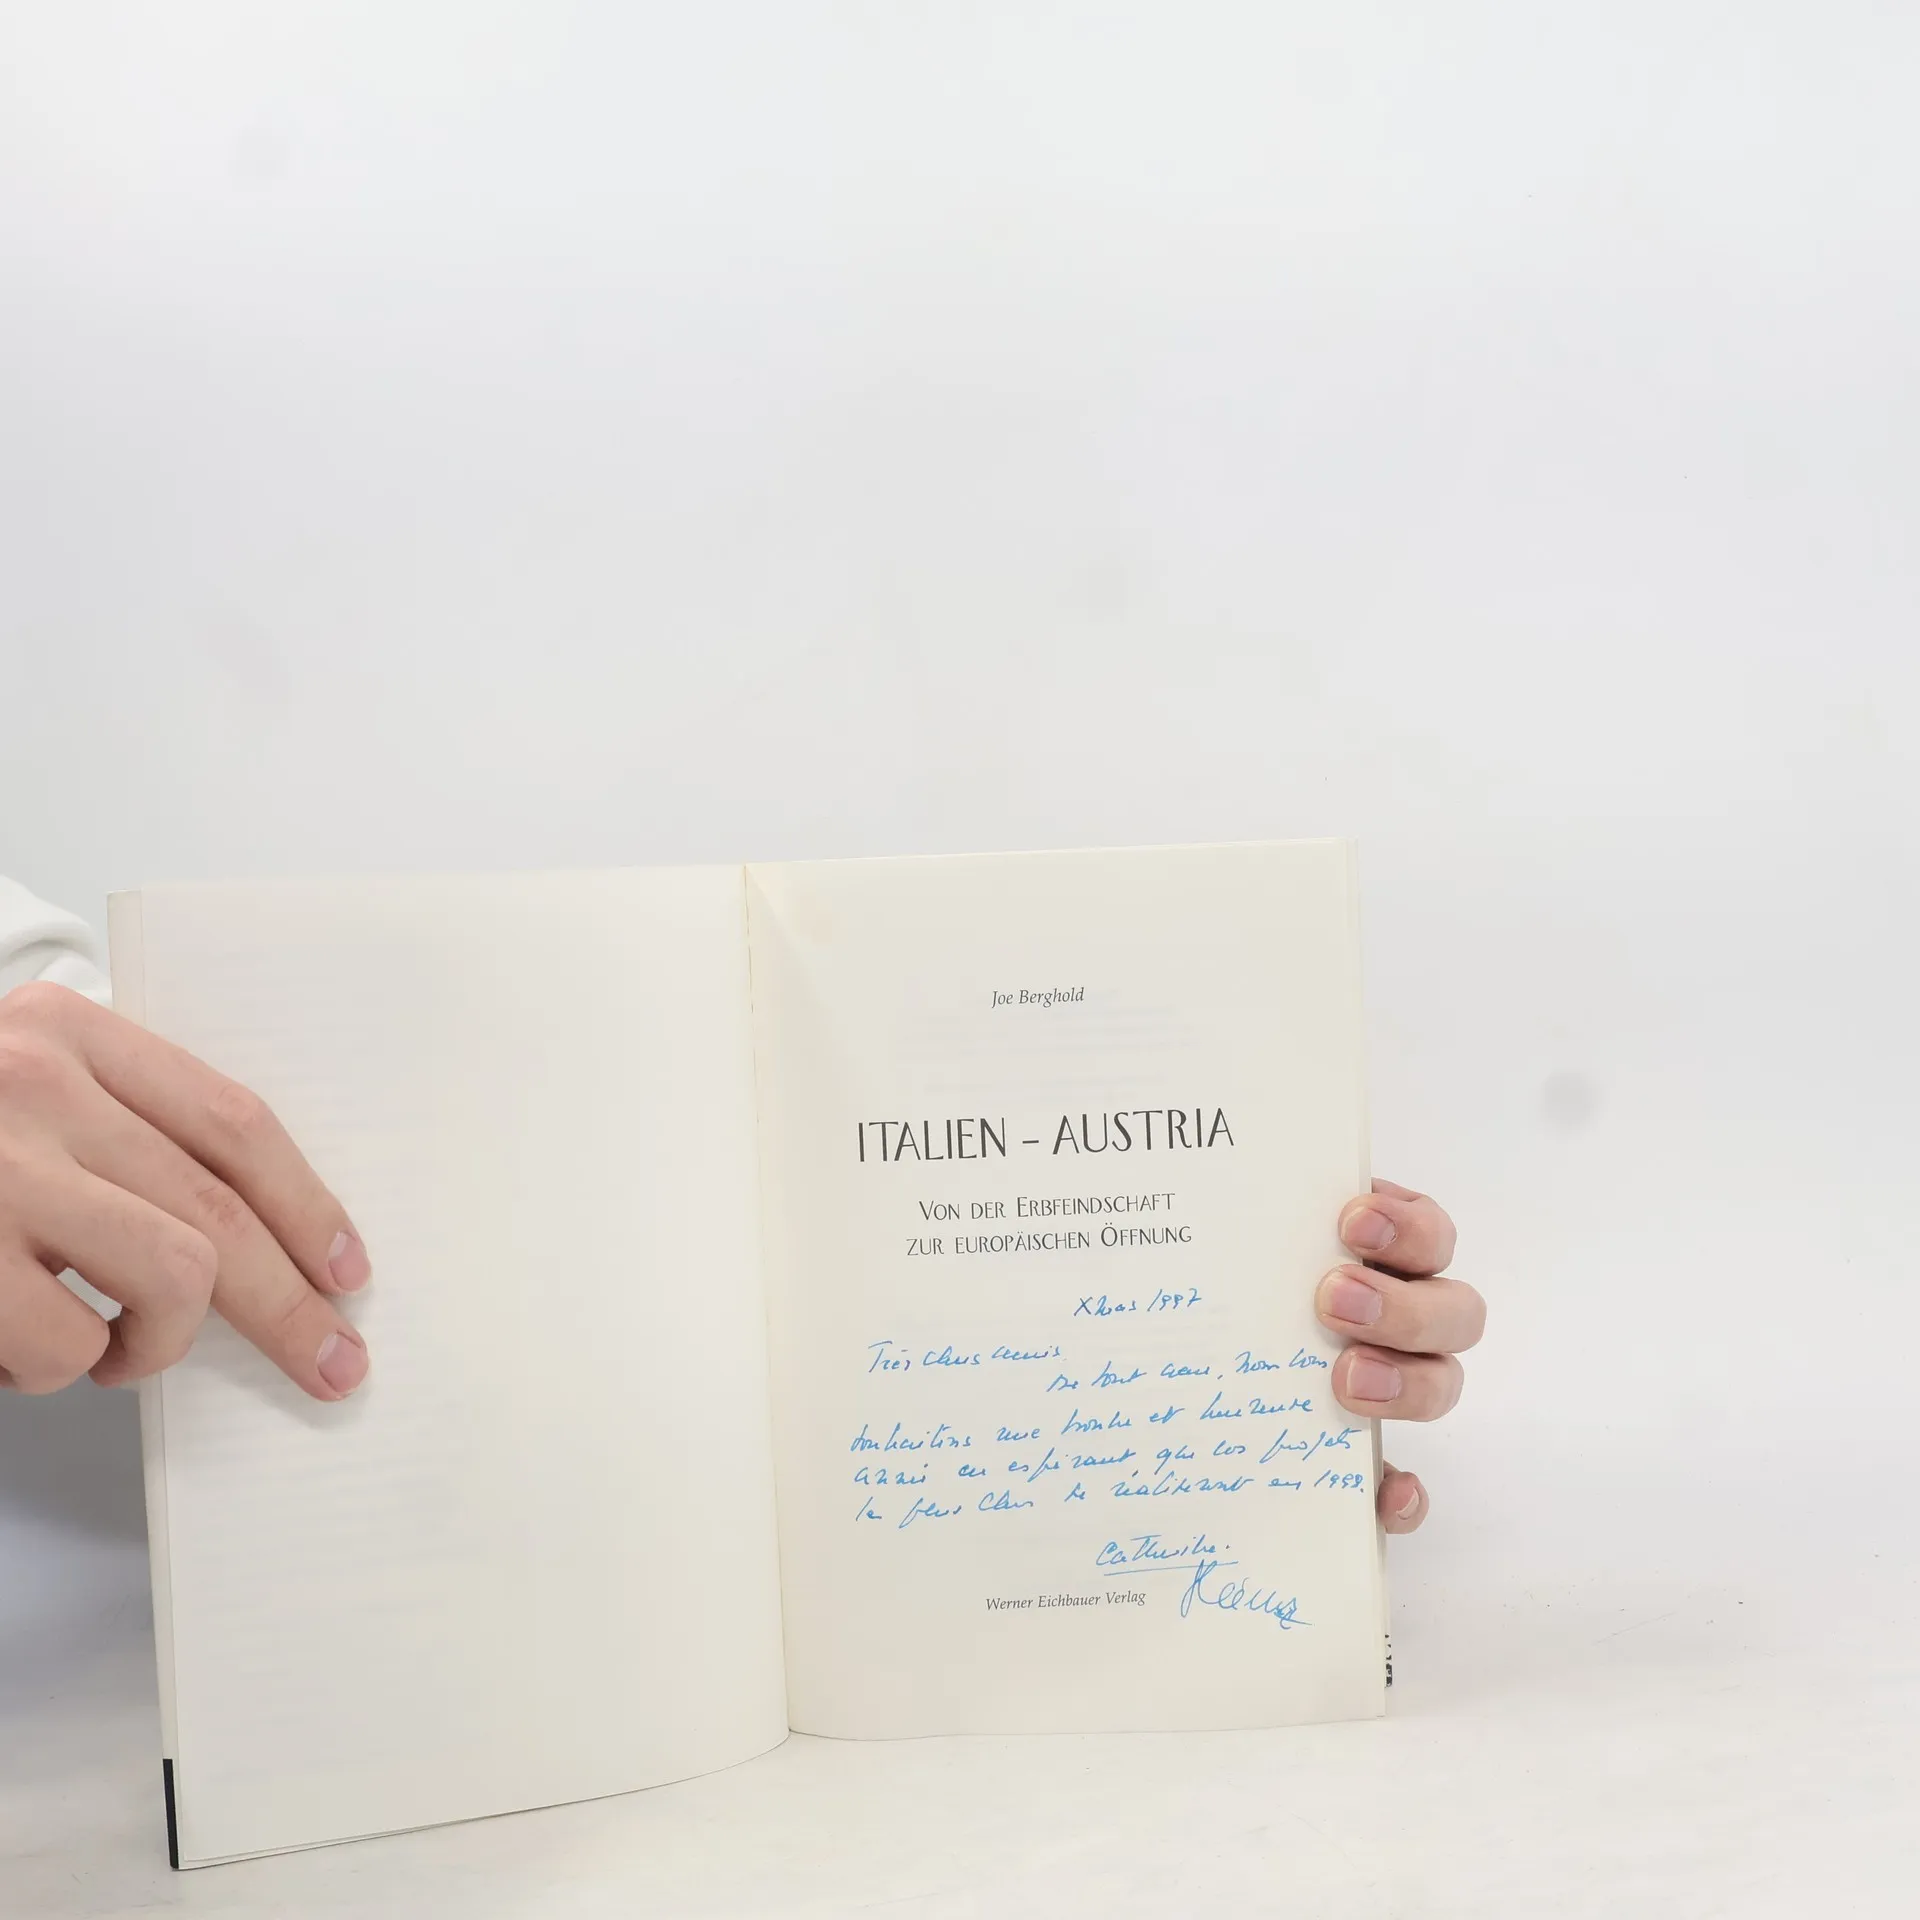 Joe Berghold
ITALIEN – AUSTRIA
VON DER ERBFEINDSCHAFT
ZUR EUROPÄISCHEN ÖFFNUNG
Xmas 1997
Très chers amis,
De tout cœur, nous vous
souhaitons une bonne et heureuse
année en espérant que vos projets
les plus chers se réaliseront en 1998.
Catherine.
Werner Eichbauer Verlag